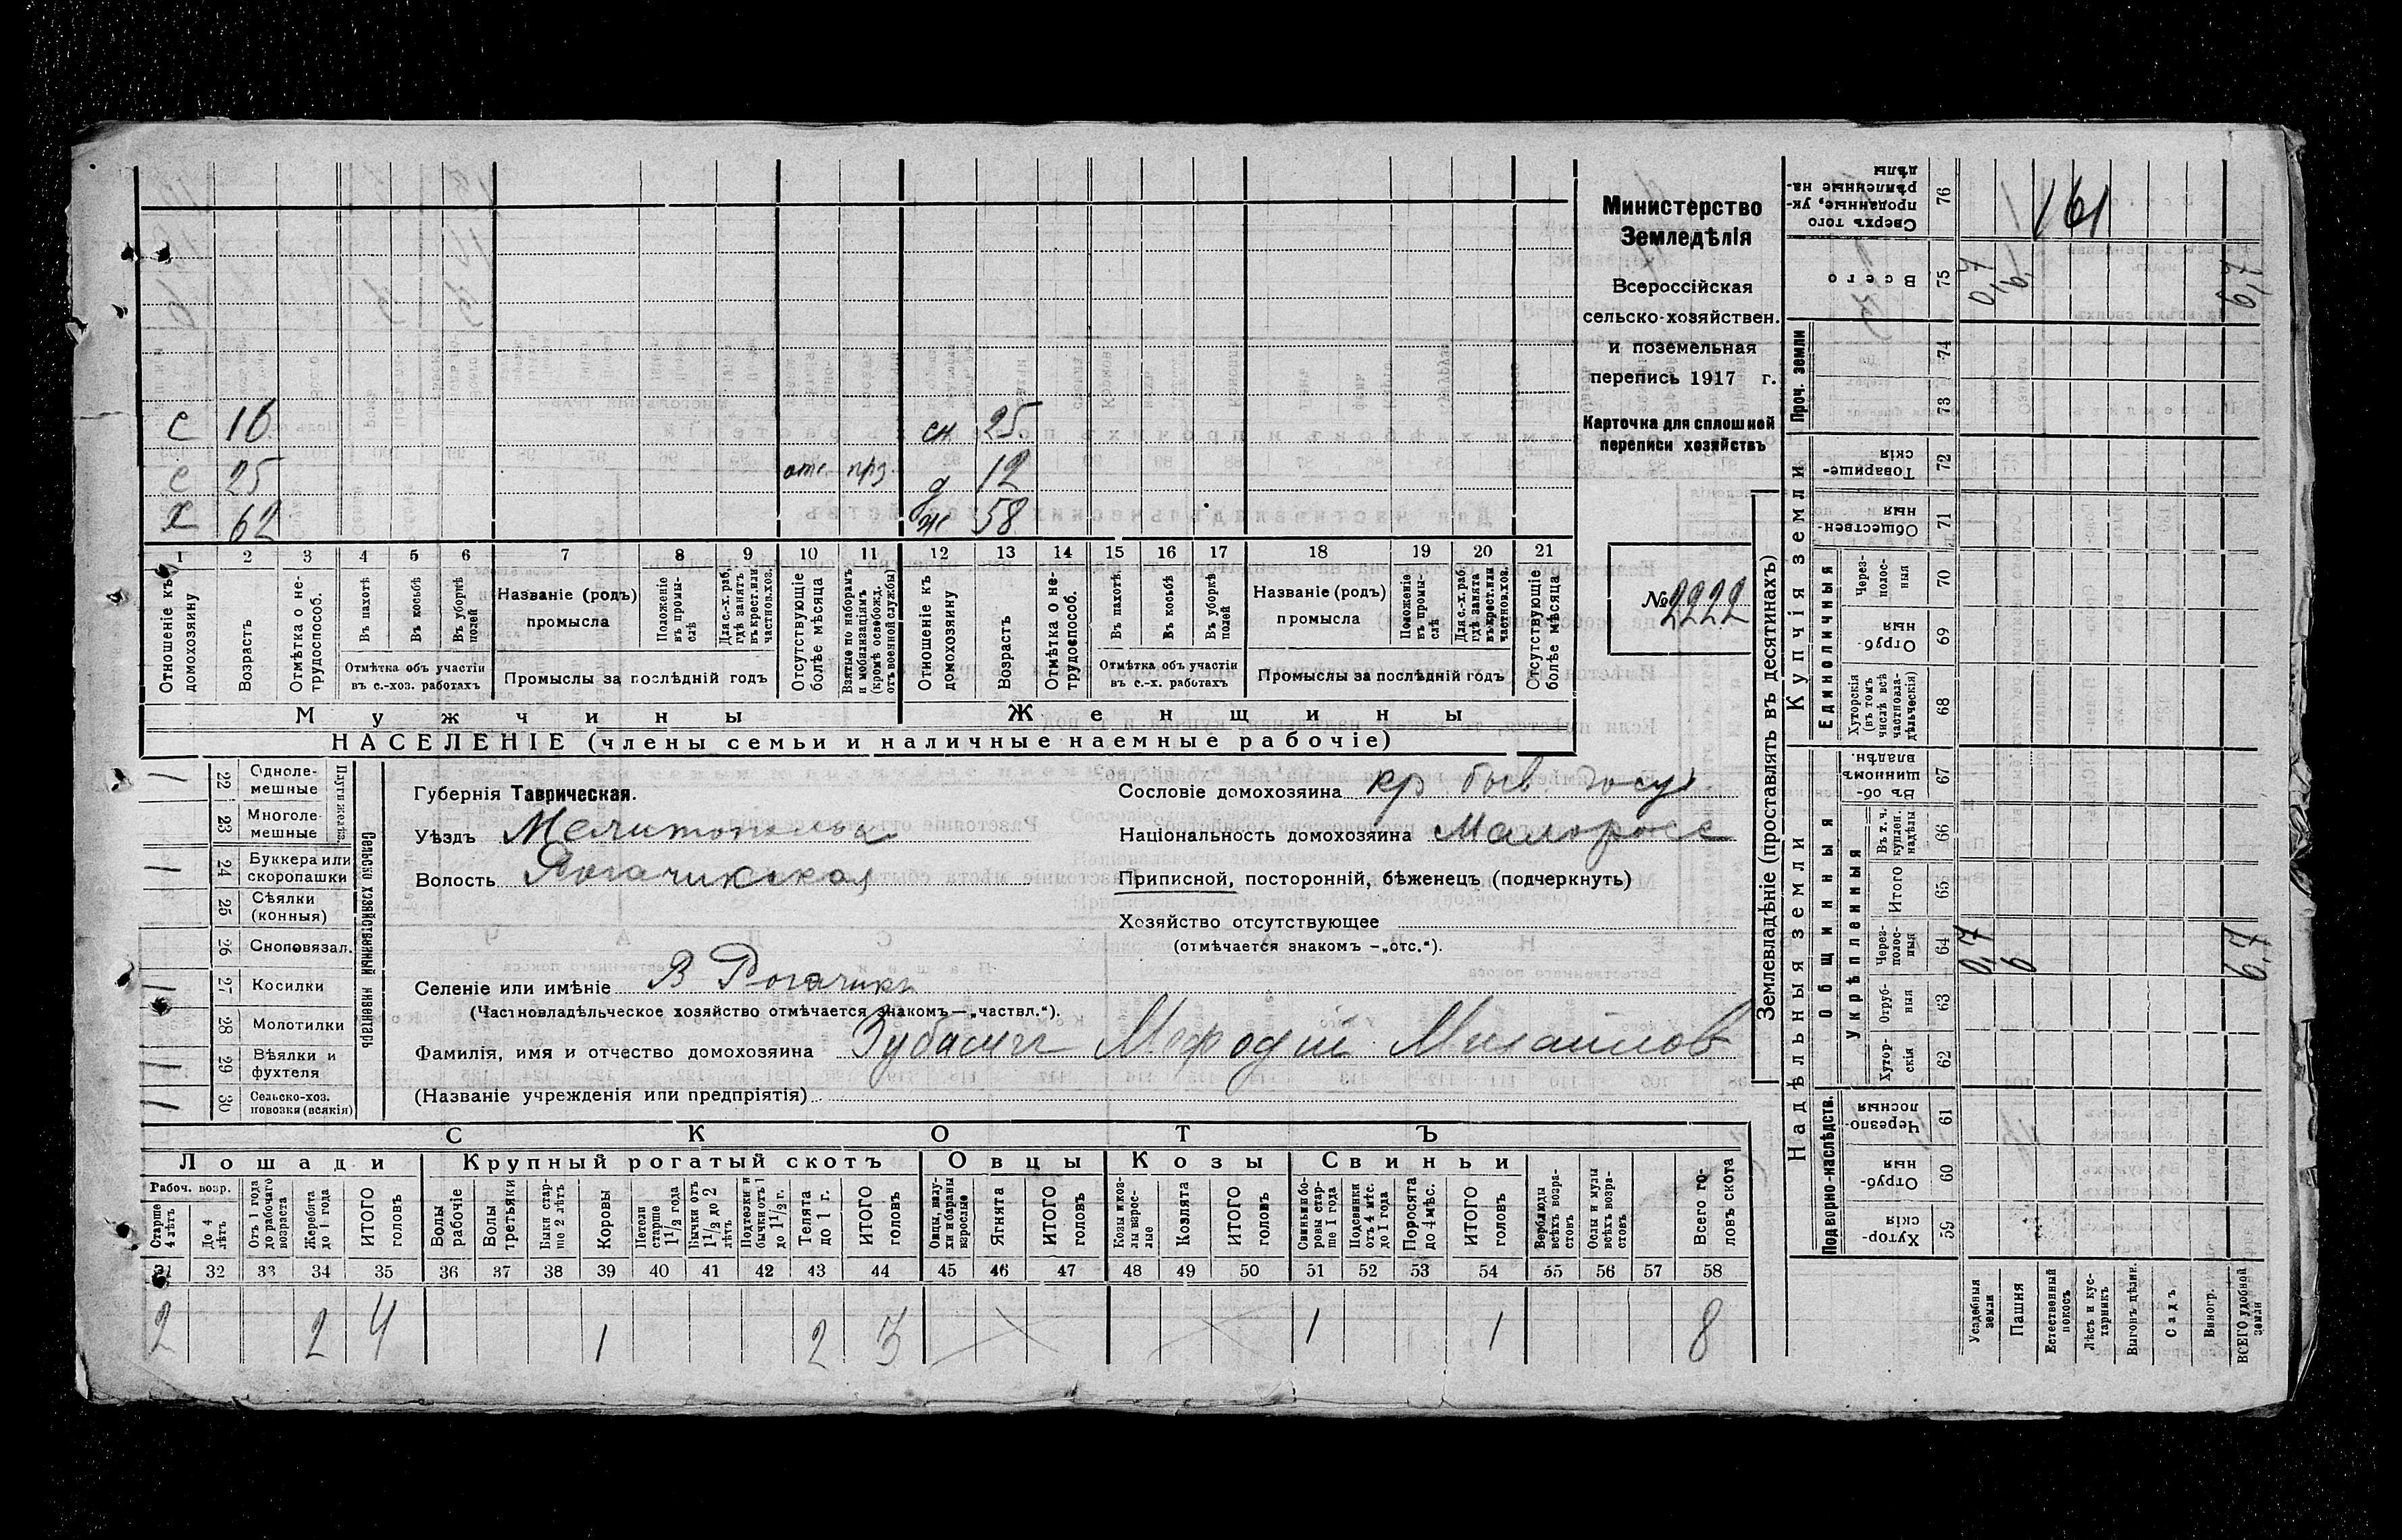 Министерство
Земледѣлія
Всероссійская
сельско-хозяйствен.
и поземельная
перепись 1917 г.
Карточка для сплошной
переписи хозяйствъ
№ 2222
с 16 сн. 25.
с 25 отс. прз. д 12
х 62 ж 58
1 2 3 4 5 6 7 8 9 10 11 12 13 14 15 16 17 18 19 20 21
Отношеніе къ домохозяину
Возрастъ
Отмѣтка о нетрудоспособ.
Въ пахотѣ
Въ косьбѣ
Въ уборкѣ полей
Отмѣтка объ участіи въ с.-хоз. работахъ
Названіе (родъ) промысла
Положеніе въ промыслѣ
Для с.-х. раб. гдѣ занятъ въ крест. или частнов. хоз.
Промыслы за послѣдній годъ
Отсутствующіе болѣе мѣсяца
Взятые по наборамъ и мобилизаціямъ (кромѣ освобожд. отъ военной службы)
Отношеніе къ домохозяину
Возрастъ
Отмѣтка о нетрудоспособ.
Въ пахотѣ
Въ косьбѣ
Въ уборкѣ полей
Отмѣтка объ участіи въ с.-х. работахъ
Названіе (родъ) промысла
Положеніе въ промыслѣ
Для с.-х. раб. гдѣ занята въ крест. или частнов. хоз.
Промыслы за послѣдній годъ
Отсутствующіе болѣе мѣсяца
Мужчины Женщины
НАСЕЛЕНІЕ (члены семьи и наличные наемные рабочіе)
Сельско хозяйственный инвентарь
1 22 Однолемешные
23 Многолемешные
1 24 Буккера или скоропашки
25 Сѣялки (конныя)
26 Сноповязал.
1 27 Косилки
28 Молотилки
1 29 Вѣялки и фухтеля
1 30 Сельско-хоз. повозки (всякія)
Губернія Таврическая.
Уѣздъ Мелитопольск
Волость Рогачикская
Селеніе или имѣніе В Рогачикъ
(Частновладѣльческое хозяйство отмѣчается знакомъ—„частвл.“).
Фамилія, имя и отчество домохозяина Мефодій Михайлов
(Названіе учрежденія или предпріятія)
Сословіе домохозяина кр быв госуд
Національность домохозяина Малоросс
Приписной, посторонній, бѣженецъ (подчеркнуть)
Хозяйство отсутствующее
(отмѣчается знакомъ —„отс.“).
СКОТЪ
Лошади Крупный рогатый скотъ Овцы Козы Свиньи
Рабоч. возр.
Старше 4 лѣтъ
До 4 лѣтъ
Отъ 1 года до рабочаго возраста
Жеребята до 1 года
ИТОГО головъ
Волы рабочіе
Волы третьяки
Быки старше 2 лѣтъ
Коровы
Нетели старше 1 1/2 года
Бычки отъ 1 1/2 до 2 лѣтъ
Подтелки и бычки отъ 1 до 1 1/2 г.
Телята до 1 г.
ИТОГО головъ
Овцы, валухи и бараны взрослые
Ягнята
ИТОГО головъ
Козы и козлы взрослые
Козлята
ИТОГО головъ
Свиньи и боровы старше 1 года
Подсвинки отъ 4 мѣс. до 1 года
Поросята до 4 мѣс.
ИТОГО головъ
Верблюды всѣхъ возрастовъ
Ослы и мулы всѣхъ возрастовъ
Всего головъ скота
31 32 33 34 35 36 37 38 39 40 41 42 43 44 45 46 47 48 49 50 51 52 53 54 55 56 57 58
2 2 4 1 2 3 1 1 8
Землевладѣніе (проставлять въ десятинахъ)
Надѣльныя земли Купчія земли Проч. земли
Подворно-наслѣдств. Общинныя Единоличныя
Укрѣпленныя
76 Сверхъ того проданные, укрѣпленные надѣлы 161
75 Всего 0,7 6, 6,7
74
73
72 Товарищескія
71 Общественныя
70 Черезполосныя
69 Отрубныя
68 Хуторскія (въ томъ числѣ всѣ частновладѣльческія)
67 Въ общинномъ владѣн.
66 Въ т. ч. куплен. надѣлы
65 Итого
64 Черезполосныя 0,7 6 6,7
63 Отрубныя
62 Хуторскія
61 Черезполосныя
60 Отрубныя
59 Хуторскія
Усадебныя земли
Пашня
Естественный покосъ
Лѣсъ и кустарникъ
Выгонъ дѣлин.
Садъ
Виногр.
ВСЕГО удобной земли